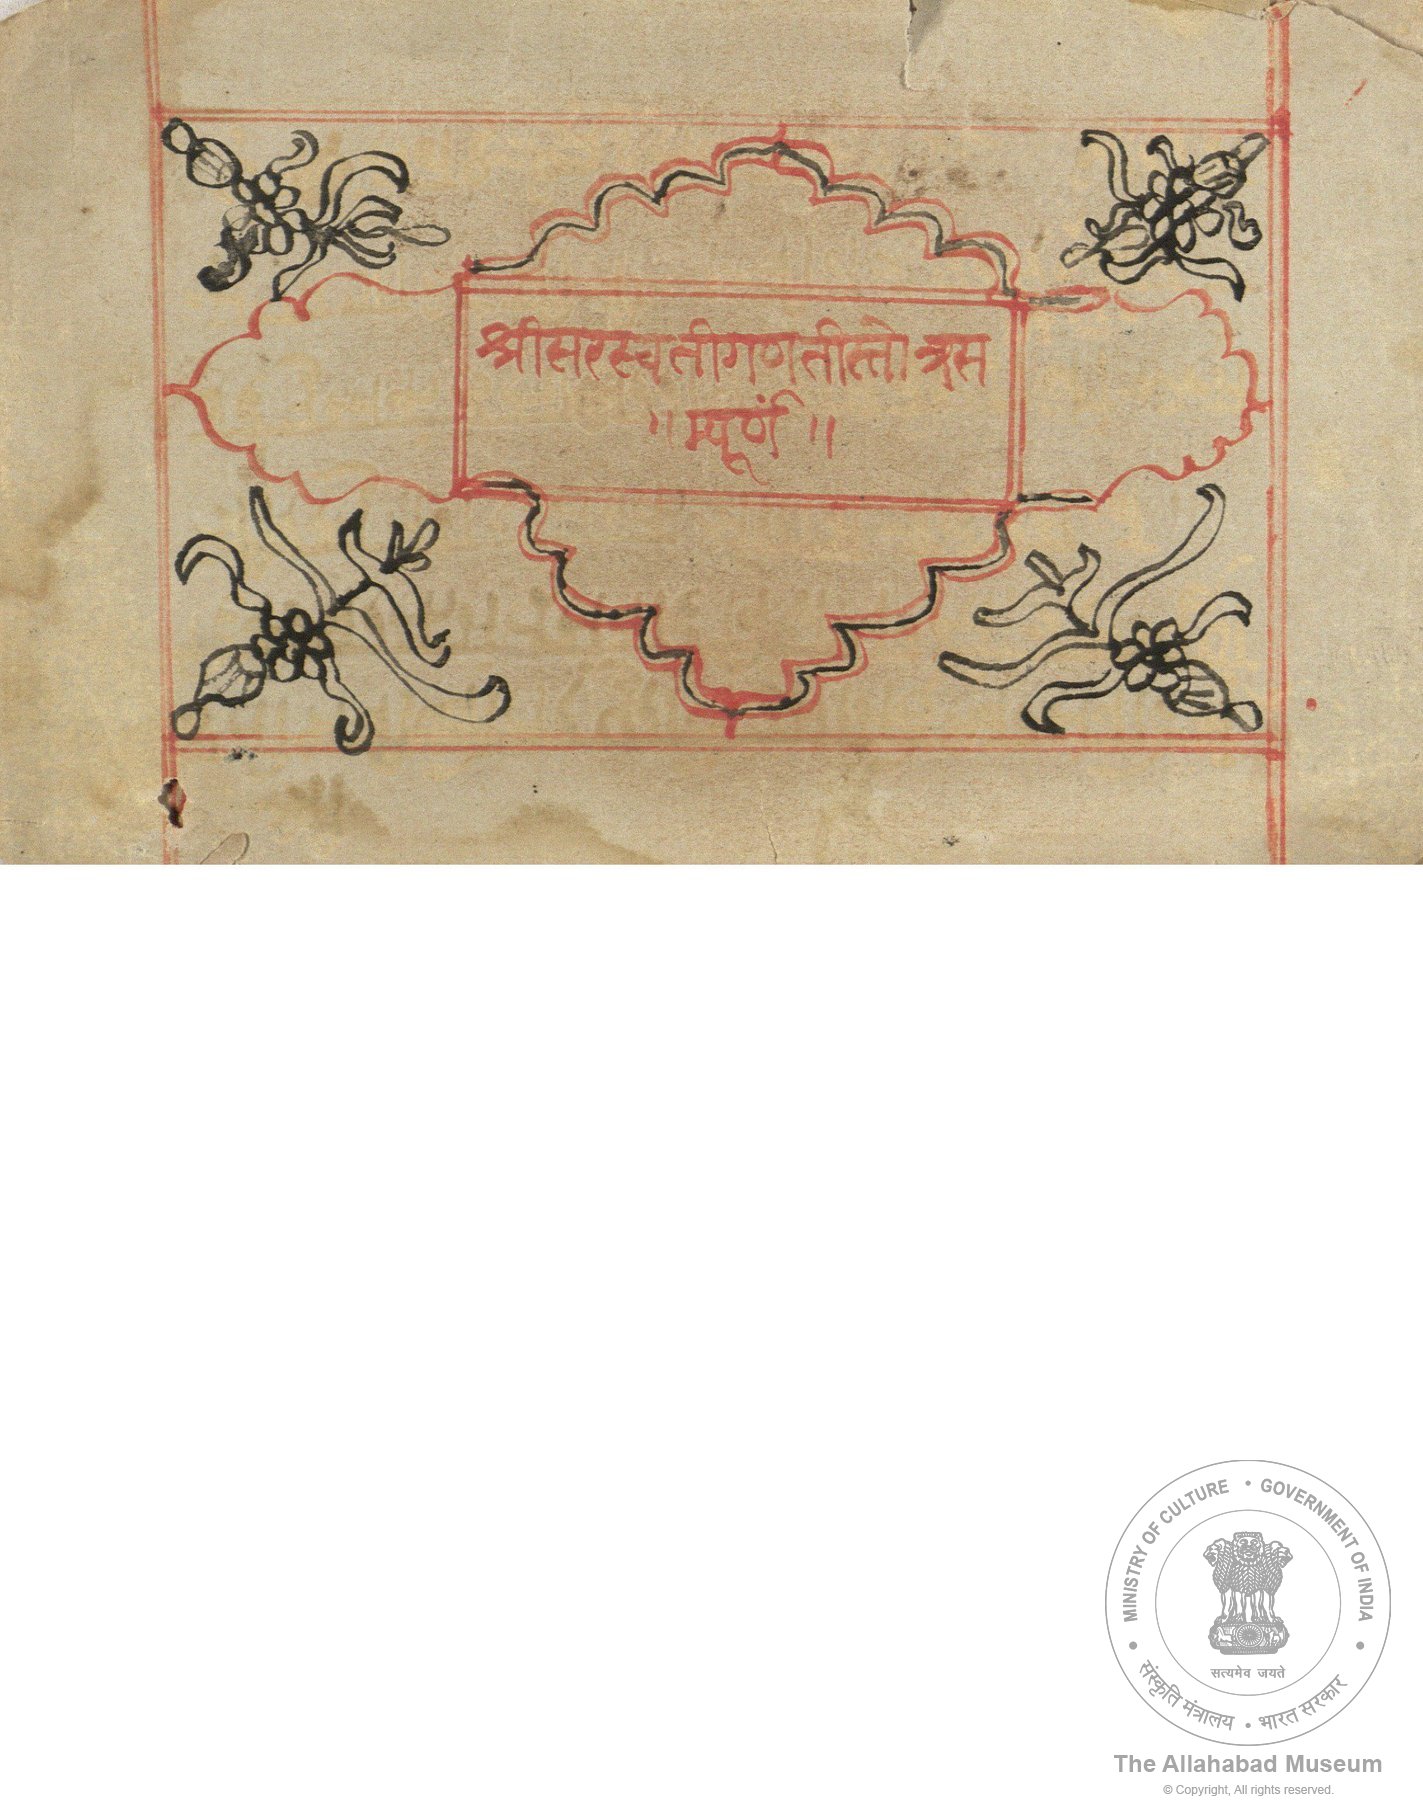 श्रीसरस्वतीगणतीत्तोत्रस
॥ म्पूर्णं ॥
MINISTRY OF CULTURE • GOVERNMENT OF INDIA
सत्यमेव जयते
संस्कृति मंत्रालय • भारत सरकार
The Allahabad Museum
© Copyright, All rights reserved.